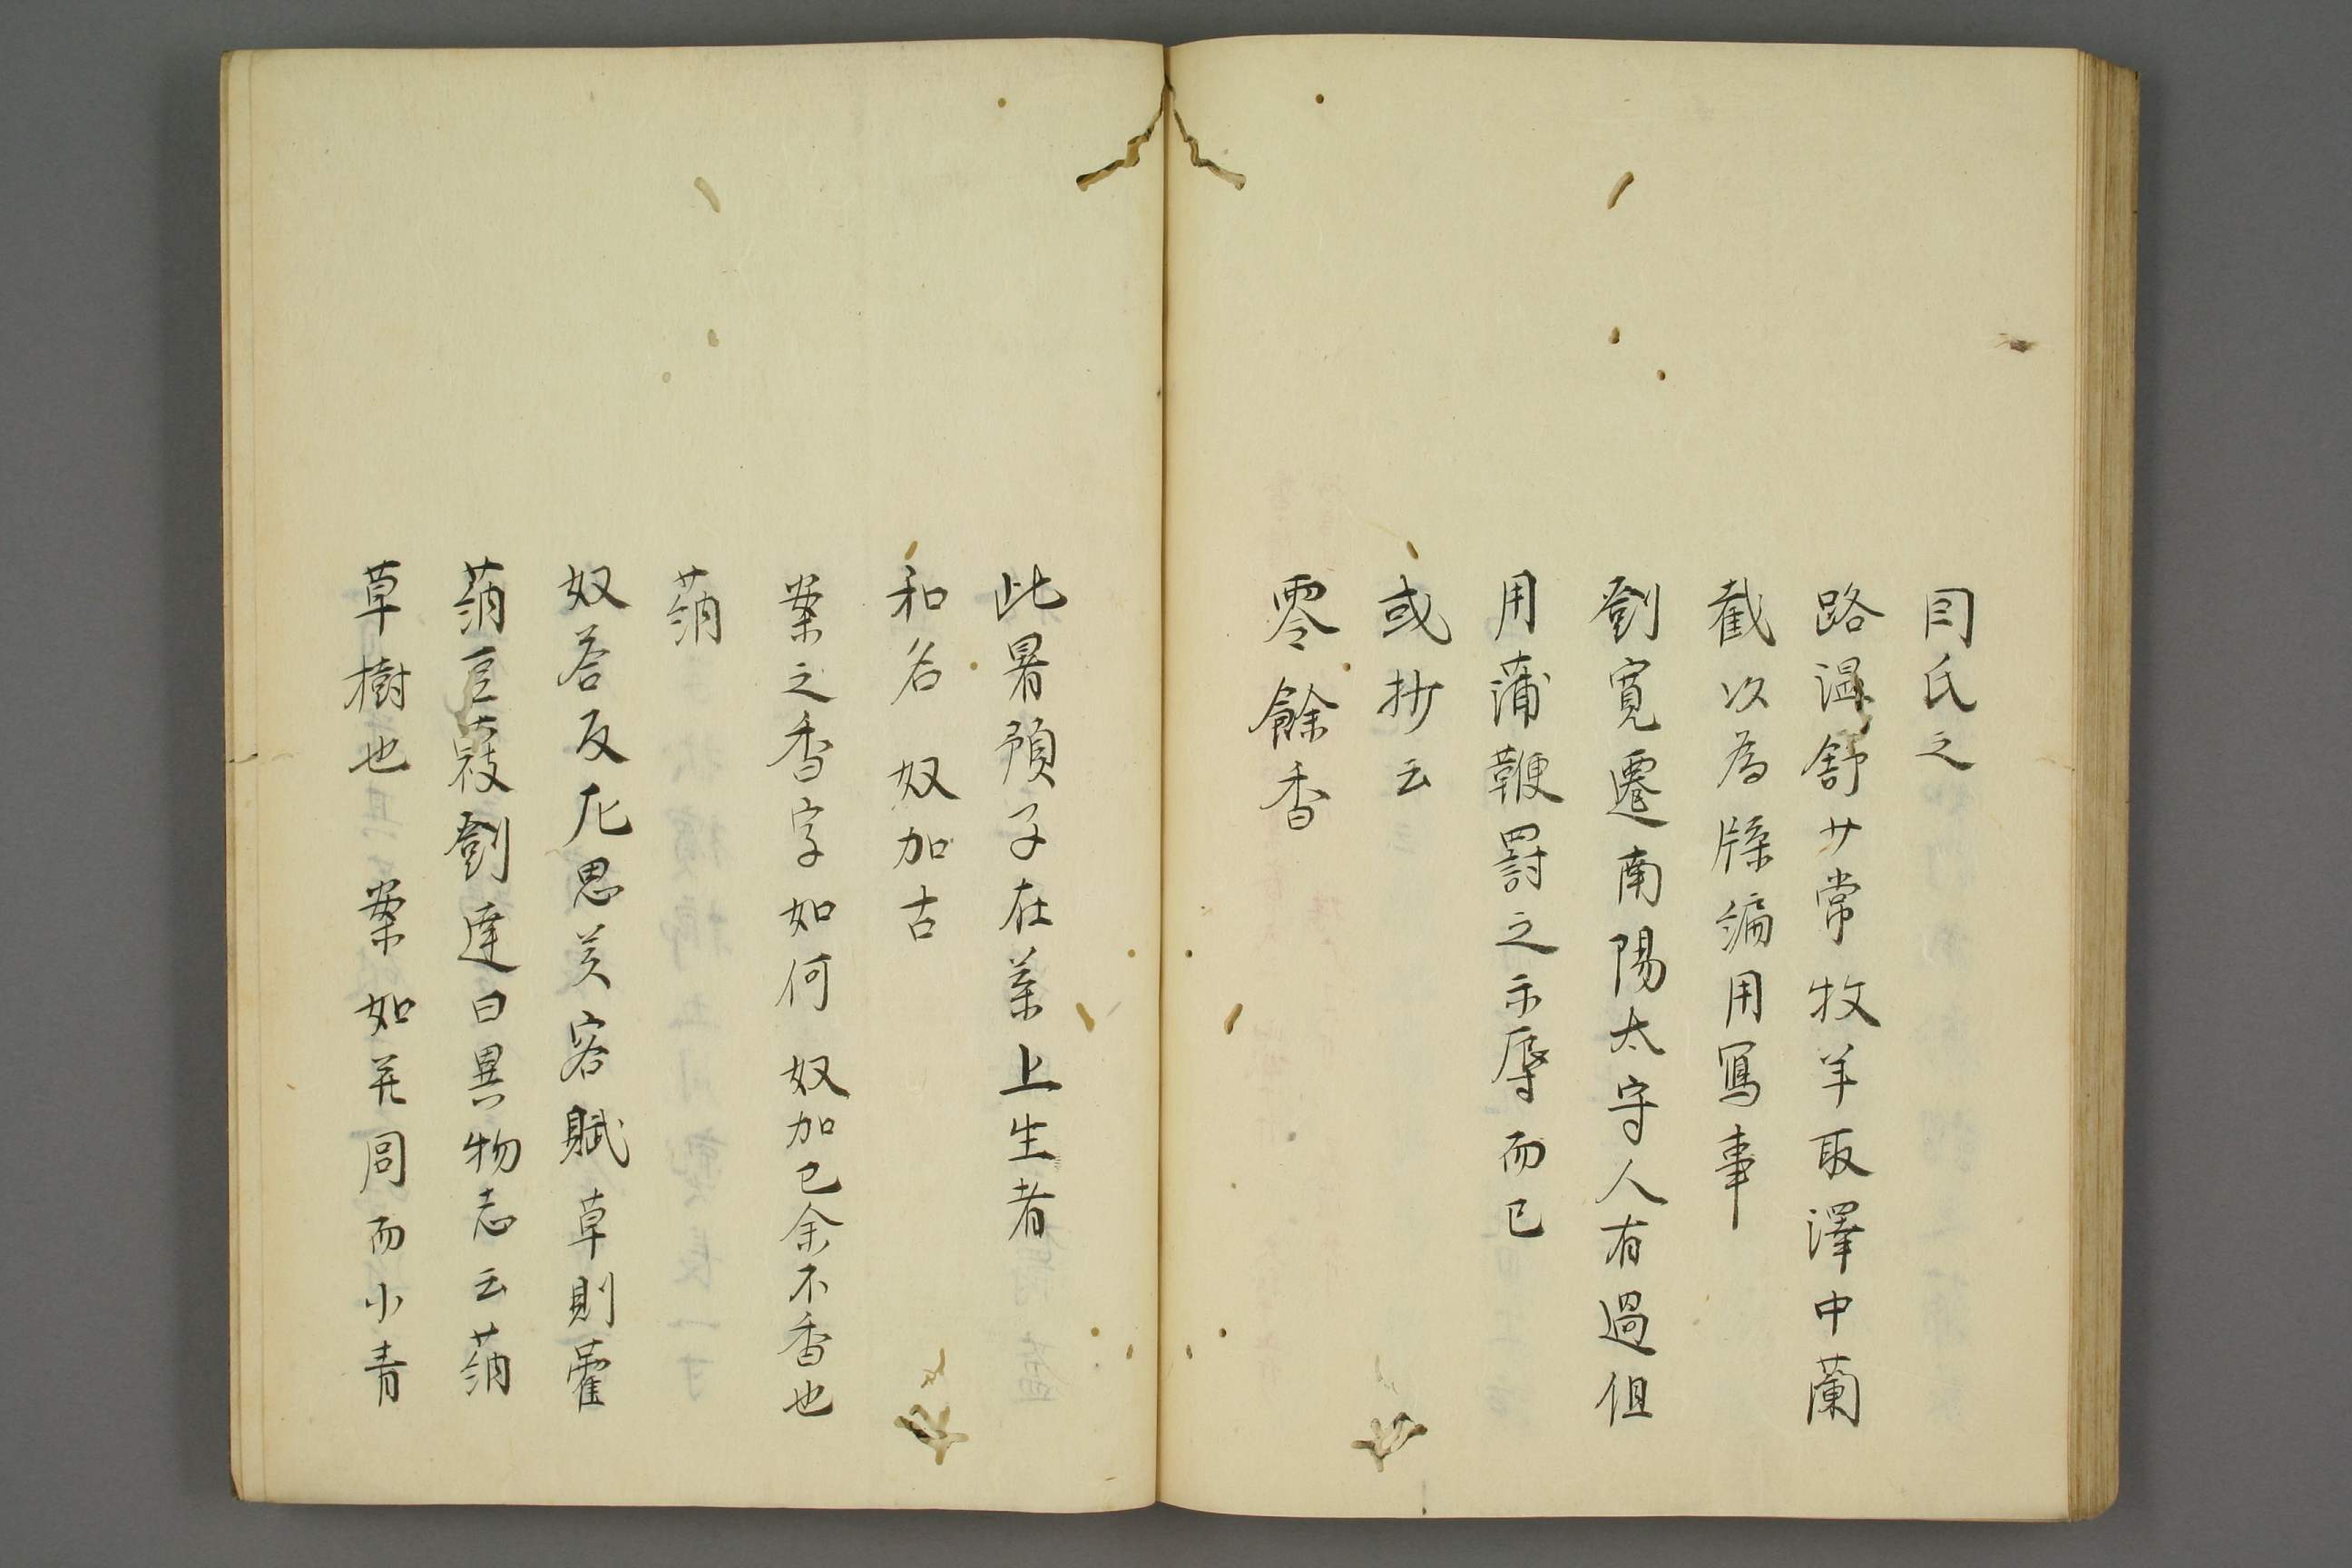 因氏之
路温舒廿常牧羊取澤中蘭
截以為牒編用寫事
劉寛遷南陽太守人有過但
用蒲鞭罸之示辱而已
或抄云
零餘香
此暑預子在葉上生者
和名 奴加古
案之香字如何 奴加已余不香也
蒳
奴荅反 尤思 芙容賦 草則藿
蒳豆蔲 劉逵曰異物志云蒳
草樹也 案如并閭而小青